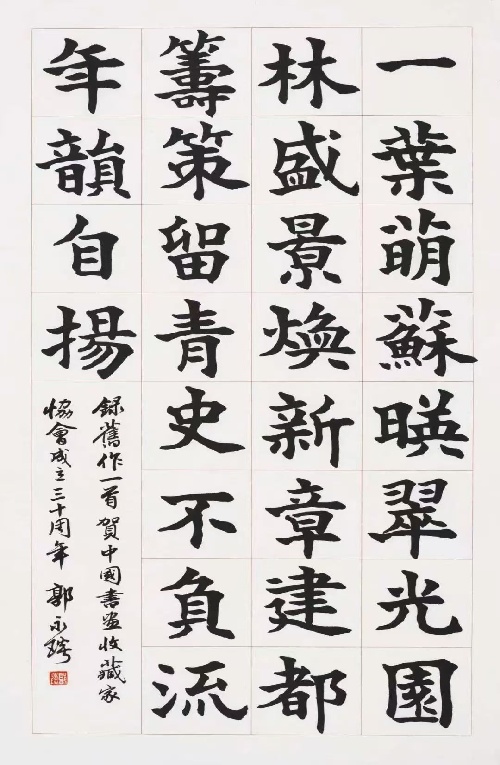 一葉萌蘇暎翠光園
林盛景煥新章建都
籌策留青史不負流
年韻自揚
録舊作一首賀中國書畫收藏家
恊會成立三十周年 郭永